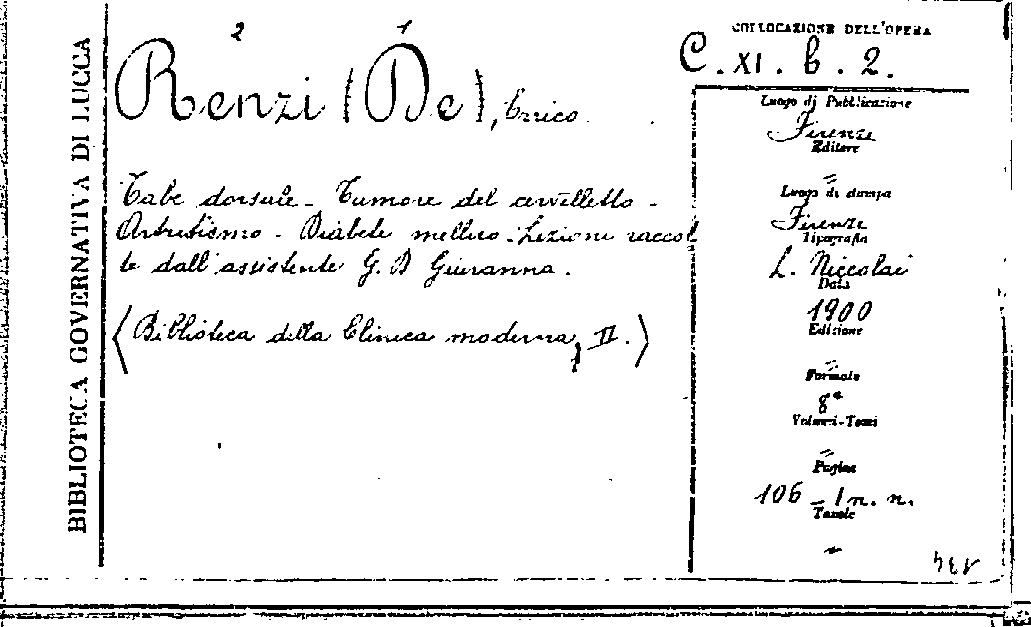 BIBLIOTECA GOVERNATIVA DI LUCCA
2 1
Renzi (De), Enrico
Tabe dorsale - Tumore del cervelletto -
Artritismo - Diabete mellito - Lezioni raccol
te dall'assistente G. B Giuranna.
(Biblioteca della Clinica moderna, II.)
COLLOCAZIONE DELL'OPERA
C. XI. b. 2.
Luogo di Pubblicazione
Firenze
Editore
=
Luogo di stampa
Firenze
Tipografia
L. Niccolai
Data
1900
Edizione
=
Formato
8°
Volumi-Tomi
=
Pagine
106 - 1 n. n.
Tavole
-